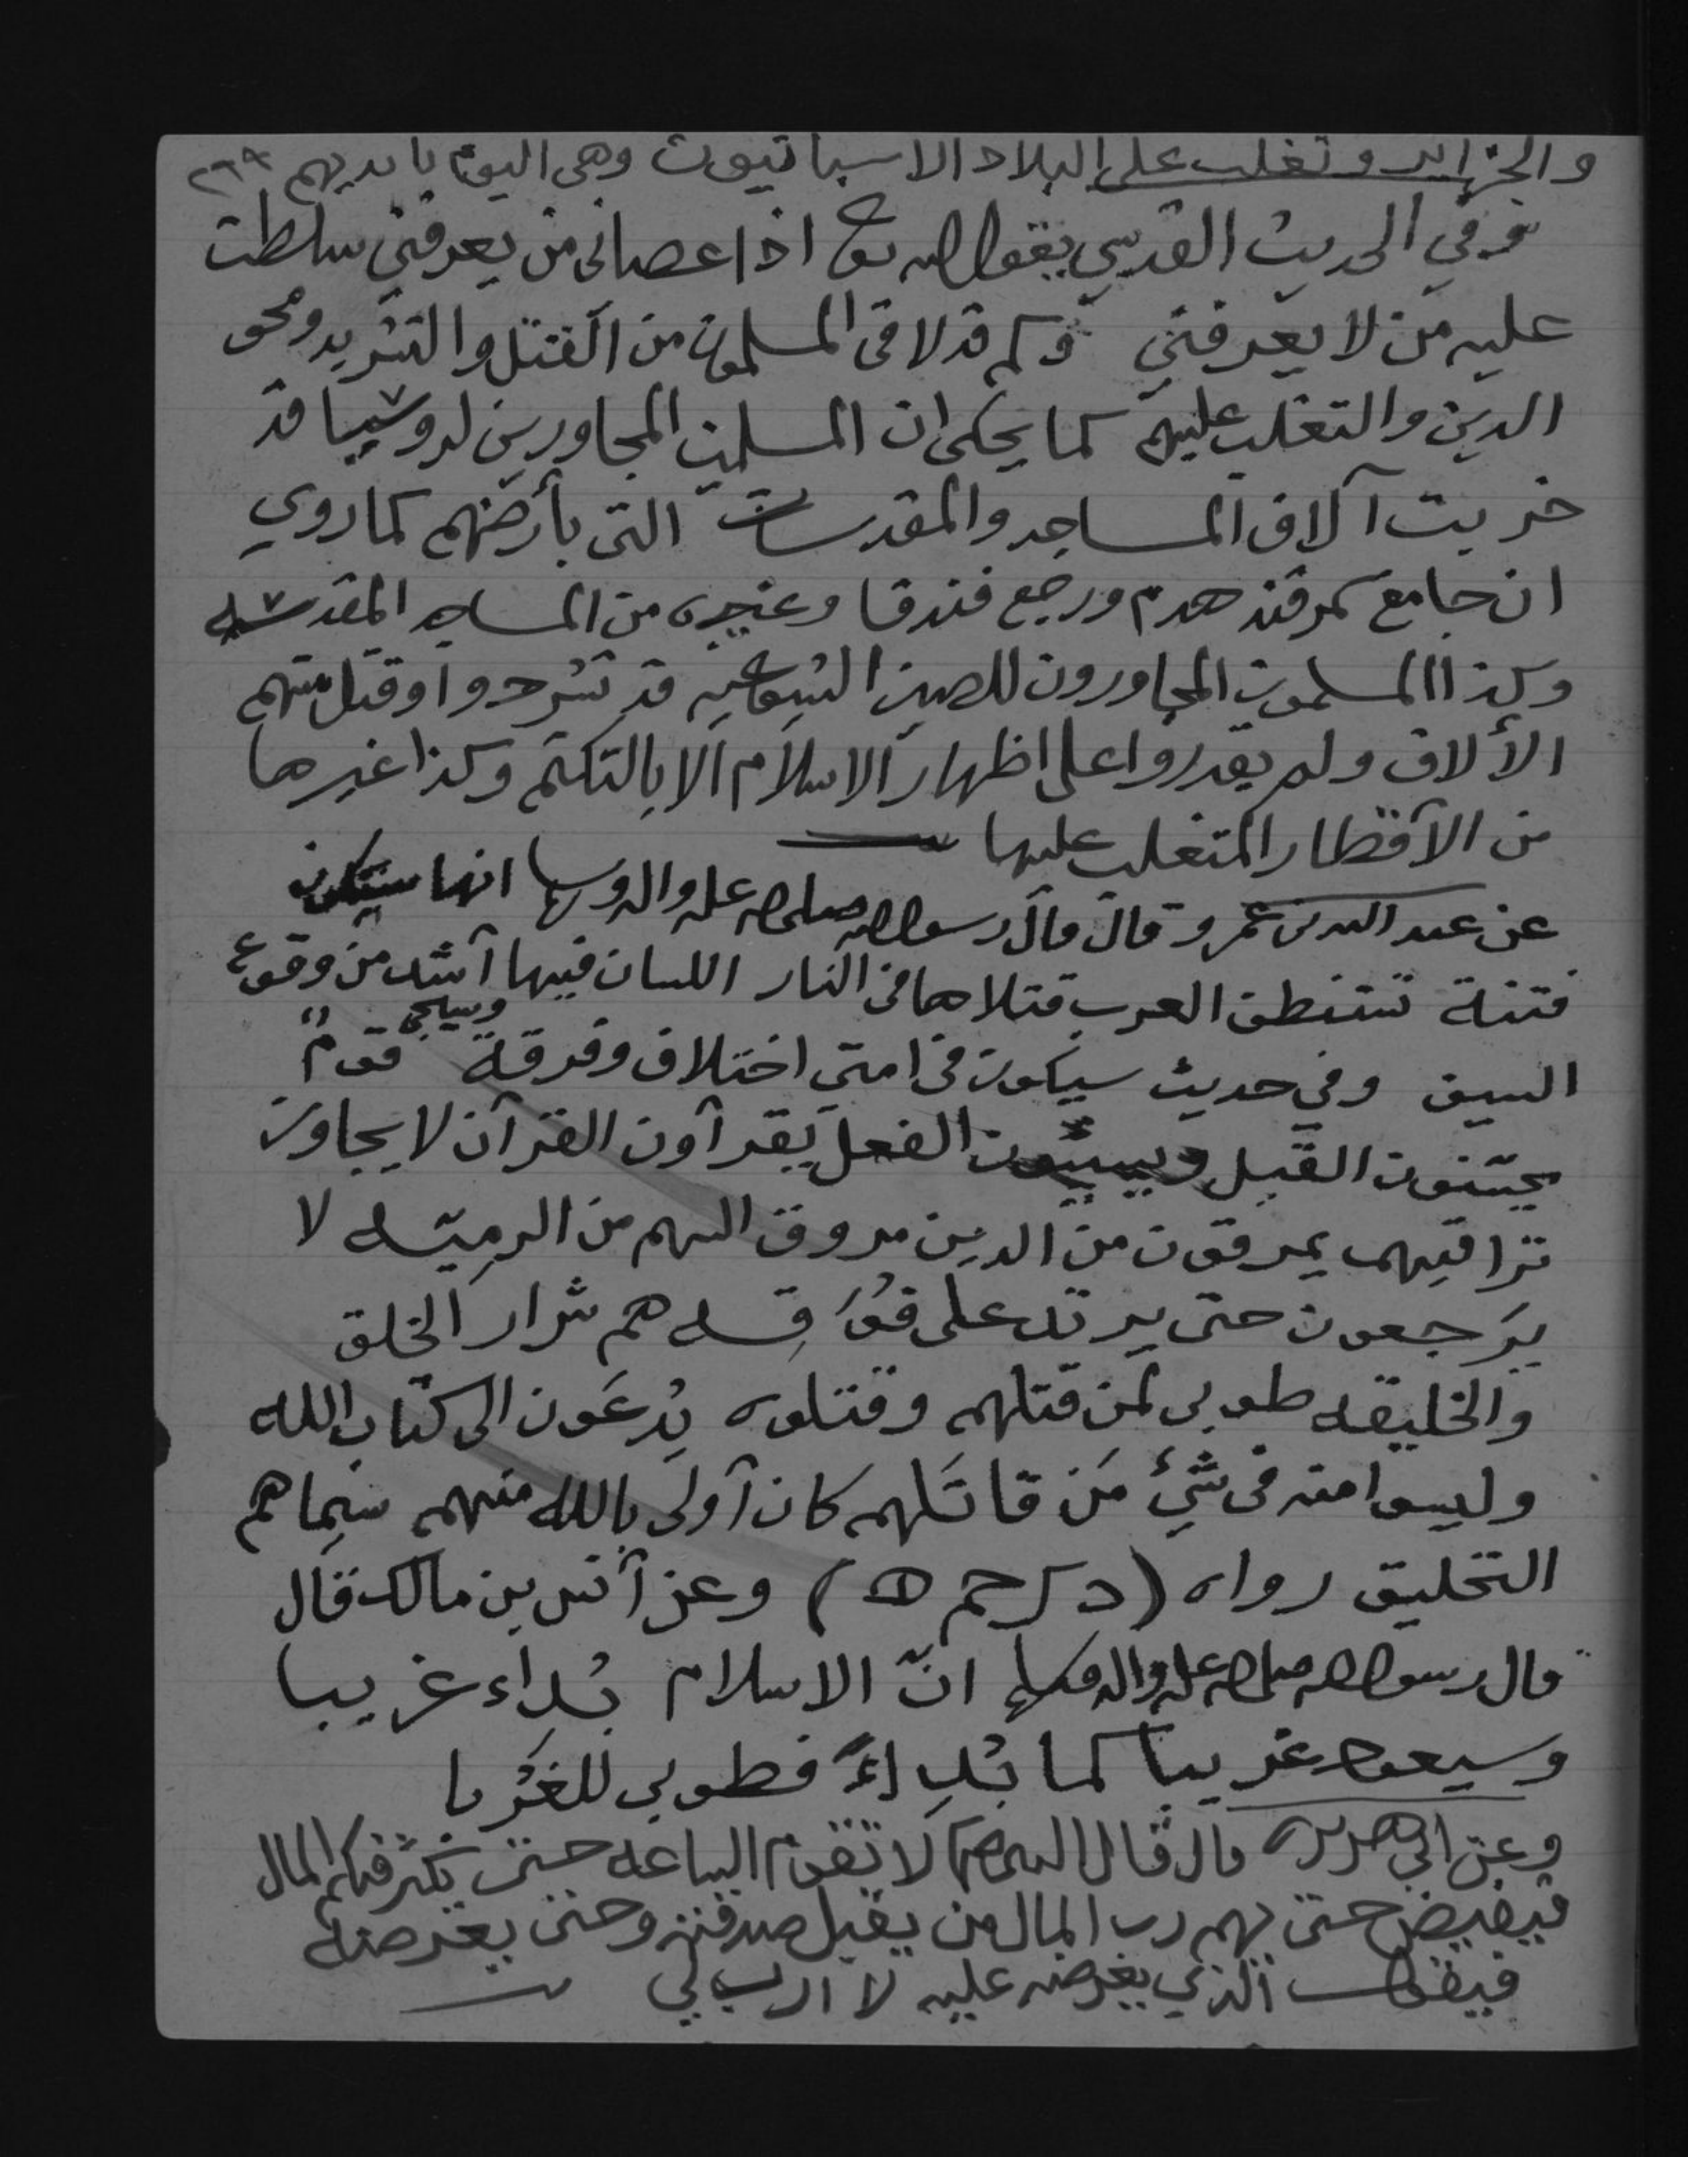 والجزاير وتغلب على البلاد الاسبانيون وهى اليوم بايديهم ٢٦٩
وفي الحديث القدسي يقول الله تعا اذا عصانى من يعرفني سلطت
عليه من لا يعرفني وكم قد لاقى المسلمون من القتل والتشريد ومحق
الدين والتغلب عليهم كما يحكى ان المسلمين المجاورين لروشيا قد
خربت آلاف المساجد والمقدسات التى بأرضهم كما روي
ان جامع سمرقند هدم ورجع فندقا وغيره من المساجد المقدسه
وكذا المسلمون المجاورون للصين الشيوعيه قد تشردوا وقتل منهم
الألاف ولم يقدروا على اظهار الاسلام الا بالتكتم وكذا غيرها
من الآقطار المتغلب عليها
عن عبد الله بن عمرو قال قال رسول الله صلى الله عليه واله وسلم انها ستكون
فتنة تستنظف العرب قتلاها فى النار اللسان فيها آشد من وقوع
السيف وفي حديث سيكون فى امتي اختلاف وفرقة وسيجي قوم
يحسنون القيل ويسيئون الفعل يقرآون القرآن لا يجاوز
تراقيهم يمرقون من الدين مروق السهم من الرميّه لا
يرجعون حتى يرتد على فُوَقِه هم شرار الخلق
والخليقه طوبى لمن قتلهم وقتلوه يُدعَون الى كتاب الله
وليسوا منه فى شيٌ مَن قاتَلهم كان آولى بالله منهم سيماهم
التحليق رواه (د ك حم ه) وعن آنس بن مالك قال
قال رسول الله صلى الله عليه واله وسلم انّ الاسلام بُداء غريبا
وسيعود غريبا كما بُدِاءَ فطوبى للغُرَبا
وعن ابى هريره قال قال النبى ص لا تقوم الساعه حتى يكثر فيكم المال
فيفيض حتى يهم رب المال من يقبل صدقته وحتى يعرضه
فيقول الذي يعرضه عليه لا ارب لي